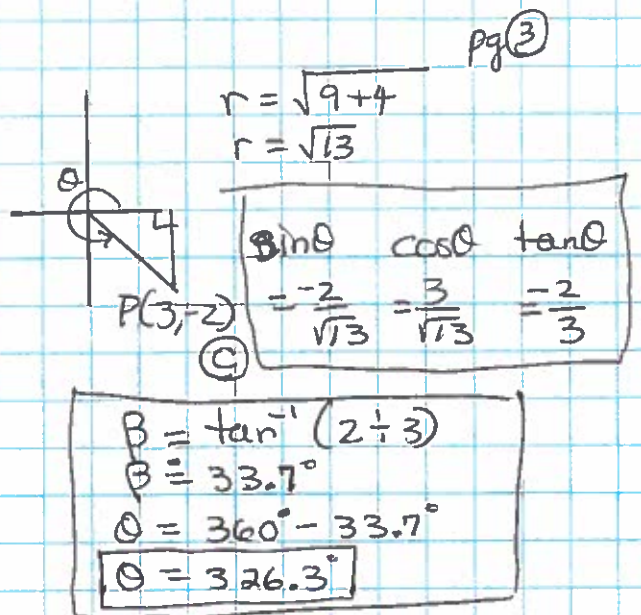 pg ③
r = √9+4
r = √13
θ
P(3,-2)
sinθ cosθ tanθ
= -2/√13 = 3/√13 = -2/3
Ⓒ
β = tan⁻¹ (2÷3)
β ≐ 33.7°
θ = 360° - 33.7°
θ = 326.3°